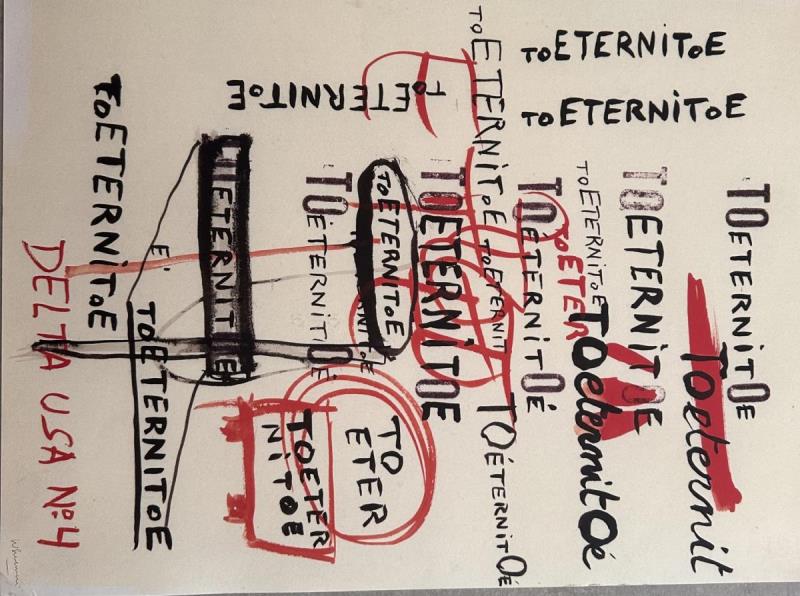 TOETERNiTOE
TOETERNiTOE
TOETERNiTOE
TOETERNiTOE
TOeternit
TOETERNiTOE
TOETERNiTOE
TOeternitOé
TOETER
TOÉTERNiTOÉ
TOETERNiTOE
TOETERNIT
TOÉTERNiTOÉ
TOETERNiTOE
TOETERNiTOE
TO
ETER
TOÉTERNiTOÉ
TOETER
NiTOE
ETERNITOE
E.
TOETERNiTOE
TOETERNiTOE
DELTA USA Nº4